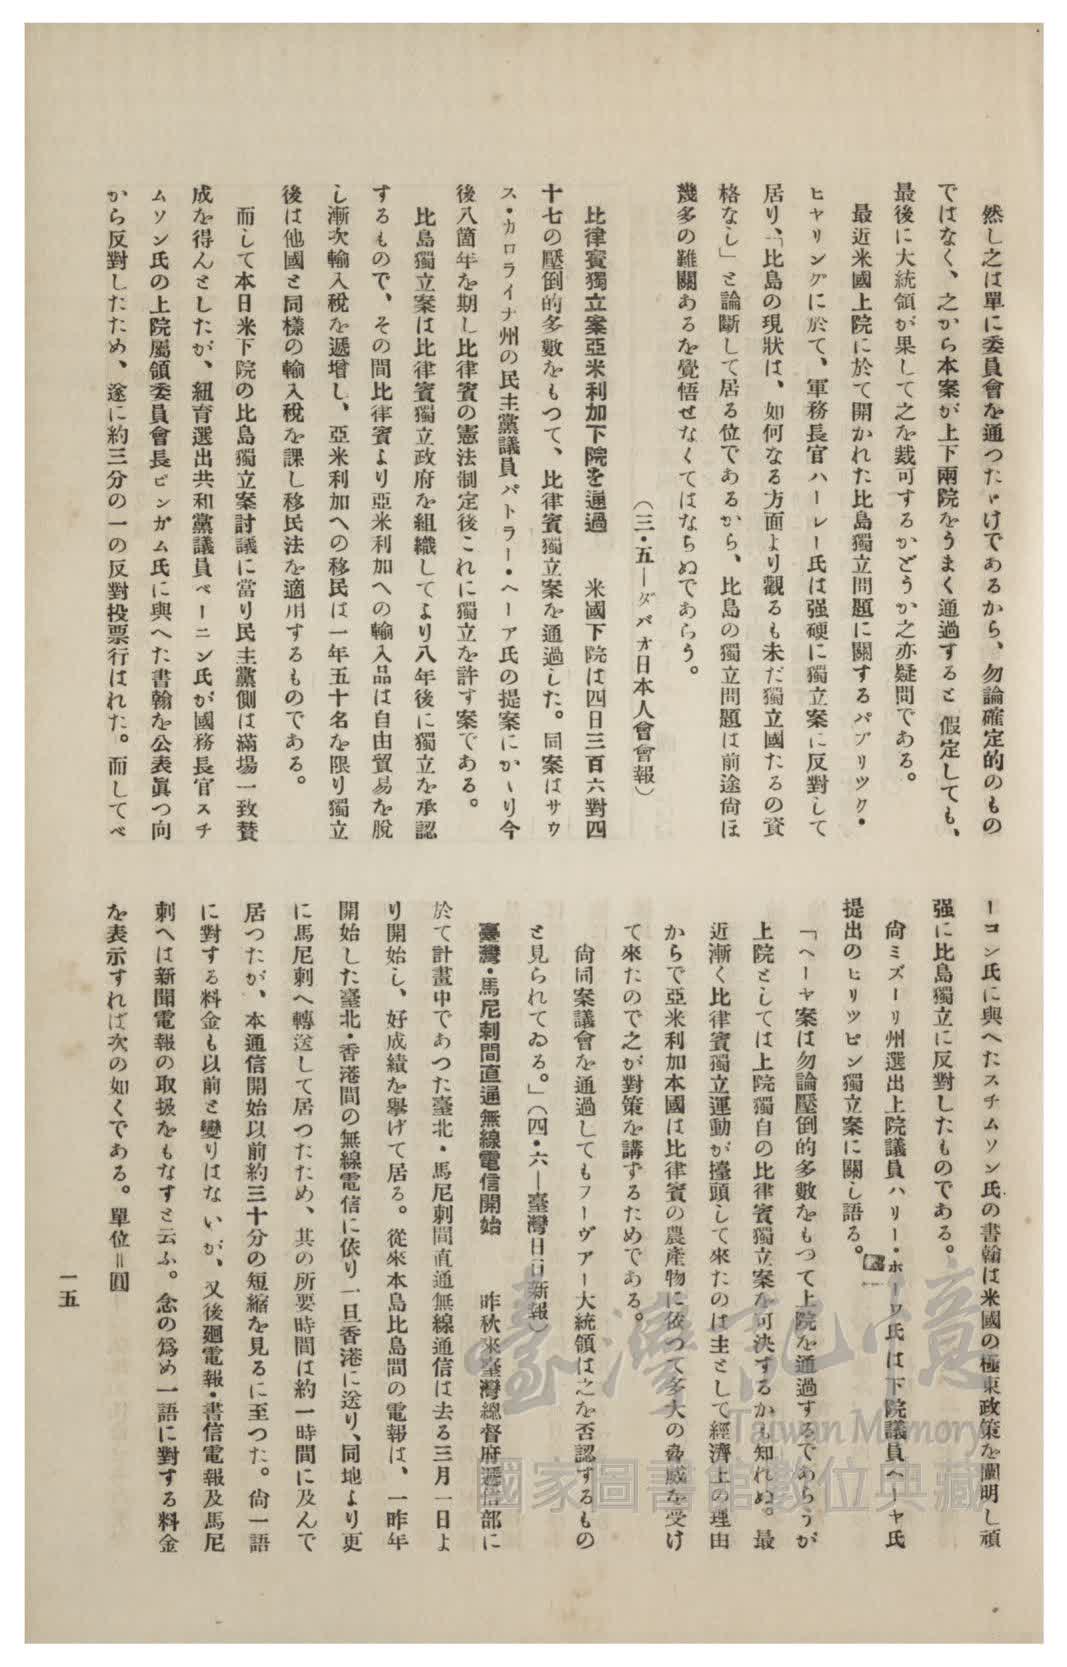 然し之は單に委員會を通つたゞけであるから、勿論確定的のもの
ではなく、之から本案が上下兩院をうまく通過すると假定しても、
最後に大統領が果して之を裁可するかどうか之亦疑問である。
最近米國上院に於て開かれた比島獨立問題に關するパブリツク・
ヒヤリングに於て、軍務長官ハーレー氏は强硬に獨立案に反對して
居り、「比島の現狀は、如何なる方面より觀るも未だ獨立國たるの資
格なし」と論斷して居る位であるから、比島の獨立問題は前途尙ほ
幾多の難關あるを覺悟せなくてはならぬであらう。
(三・五―ダバオ日本人會會報)
比律賓獨立案亞米利加下院を通過　米國下院は四日三百六對四
十七の壓倒的多數をもつて、比律賓獨立案を通過した。同案はサウ
ス・カロライナ州の民主黨議員バトラー・ヘーア氏の提案にかゝり今
後八箇年を期し比律賓の憲法制定後これに獨立を許す案である。
比島獨立案は比律賓獨立政府を組織してより八年後に獨立を承認
するもので、その間比律賓より亞米利加への輸入品は自由貿易を脫
し漸次輸入稅を遞增し、亞米利加への移民は一年五十名を限り獨立
後は他國と同樣の輸入稅を課し移民法を適用するものである。
而して本日米下院の比島獨立案討議に當り民主黨側は滿場一致贊
成を得んとしたが、紐育選出共和黨議員ベーニン氏が國務長官スチ
ムソン氏の上院屬領委員會長ビンガム氏に與へた書翰を公表眞つ向
から反對したため、遂に約三分の一の反對投票行はれた。而してベ
ーコン氏に與へたスチムソン氏の書翰は米國の極東政策を闡明し頑
强に比島獨立に反對したものである。
尙ミズーリ州選出上院議員ハリー・ホーワ氏は下院議員ヘーヤ氏
提出のヒリツピン獨立案に關し語る。
「ヘーヤ案は勿論壓倒的多數をもつて上院を通過するであらうが
上院としては上院獨自の比律賓獨立案を可決するかも知れぬ。最
近漸く比律賓獨立運動が擡頭して來たのは主として經濟上の理由
からで亞米利加本國は比律賓の農產物に依つて多大の脅威を受け
て來たので之が對策を講ずるためである。
尙同案議會を通過してもフーヴアー大統領は之を否認するもの
と見られてゐる。」(四・六―臺灣日日新報)
臺灣・馬尼剌間直通無線電信開始　昨秋來臺灣總督府遞信部に
於て計畫中であつた臺北・馬尼剌間直通無線通信は去る三月一日よ
り開始し、好成績を擧げて居る。從來本島比島間の電報は、一昨年
開始した臺北・香港間の無線電信に依り一旦香港に送り、同地より更
に馬尼剌へ轉送して居つたため、其の所要時間は約一時間に及んで
居つたが、本通信開始以前約三十分の短縮を見るに至つた。尙一語
に對する料金も以前と變りはないが、又後廻電報・書信電報及馬尼
剌へは新聞電報の取扱をもなすと云ふ。念の爲め一語に對する料金
を表示すれば次の如くである。單位＝圓
一五
臺灣記憶
Taiwan Memory
國家圖書館數位典藏